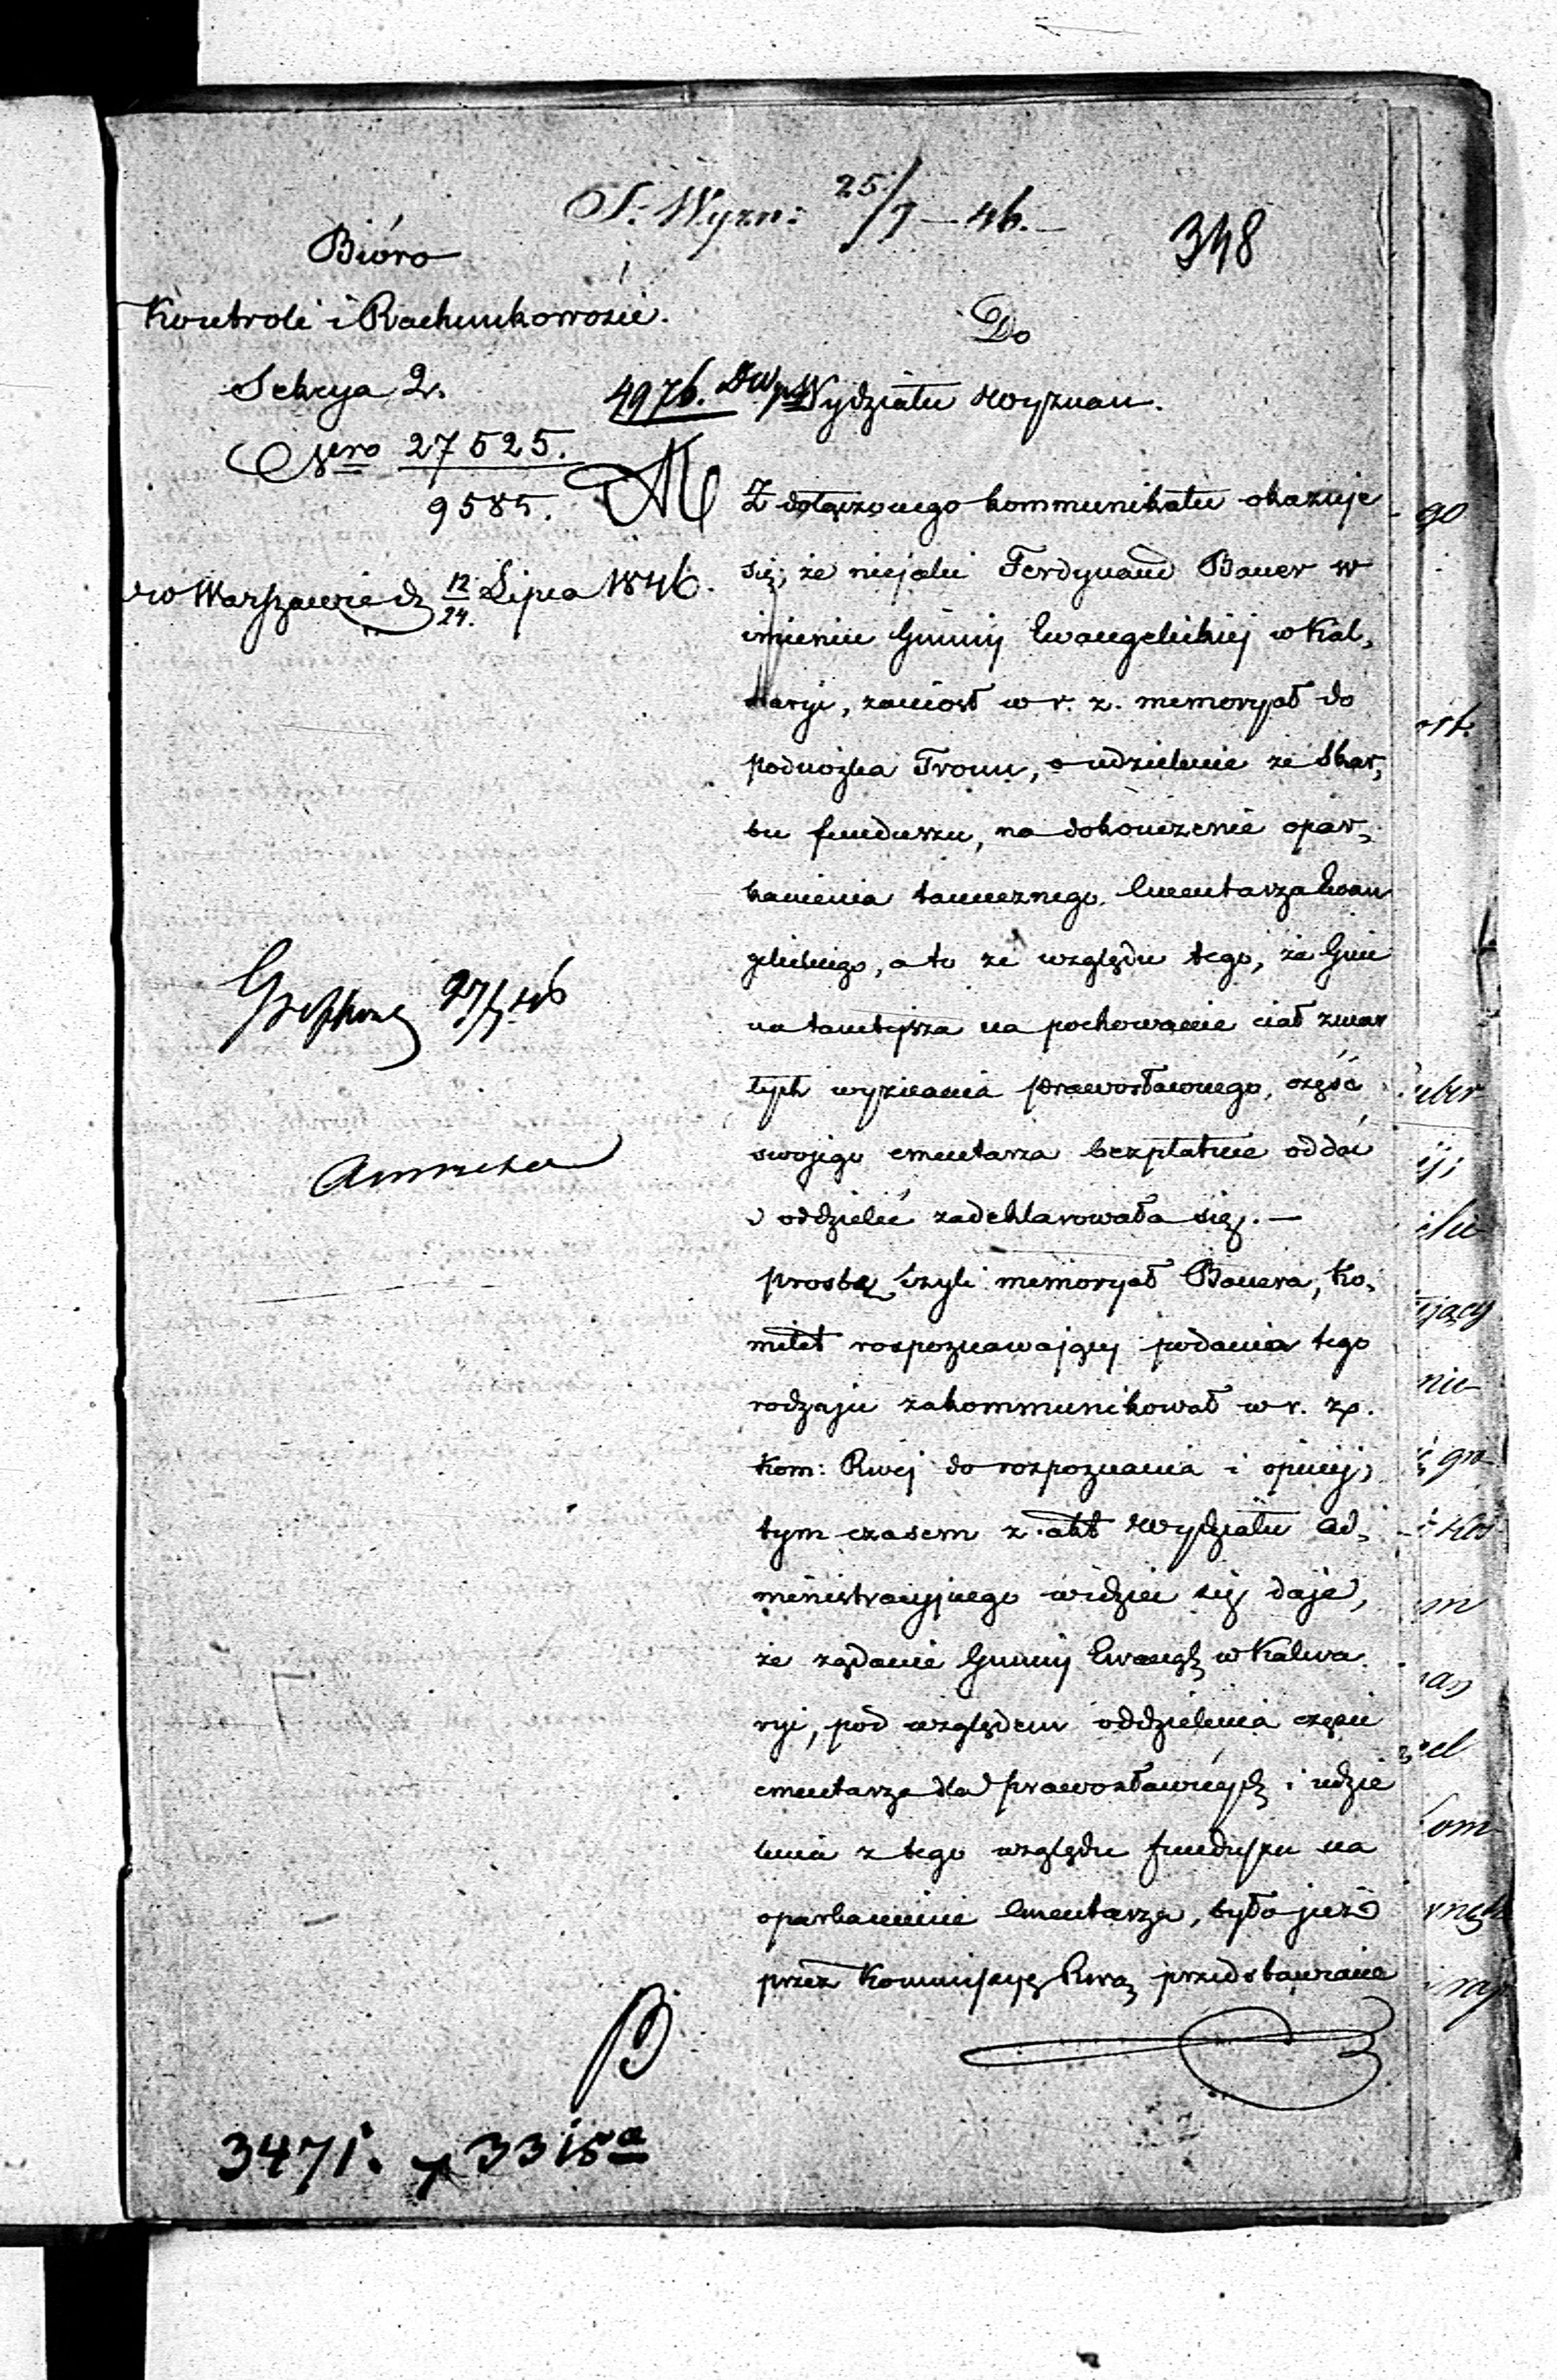 S: Wyzn: 25/7 – 46.
348
Bióro
Kontroli i Rachunkowości.
Sekcya 2.
Nero 27525.
9585.
w Warszawie d. 12/24. Lipca 1846.
Do
4976. Wydziału Wyznań.
Z dołączonego kommunikatu okazuje
się, że niejaki Ferdynand Bauer w
imieniu Gminy Ewangelickiej w Kal,
waryi, zaniósł w r. z. memoryał do
podnóżka Tronu, o udzielenie ze Skar,
bu funduszu, na dokończenie opar,
kanienia tamecznego Cmentarza Ewan
gelickiego, a to ze względu tego, że Gmi
na tamtejsza na pochowanie ciał zmar
łych wyznania prawosławnego, część
swojego cmentarza bezpłatnie oddać
i oddzielić zadeklarowała się. —
Prośbę czyli memoryał Bauera, Ko,
mitet rospoznawający podania tego
rodzaju zakommunikował w r. z.
Kom: Rwéj do rozpoznania i opinij,
tym czasem z akt Wydziału Ad,
ministracyjnego widzieć się daje,
że żądanie Gminy Ewang. w Kalwa
ryi, pod względem oddzielenia części
cmentarza dla prawosławnych i udzie
lenia z tego względu funduszu na
oparkanienie Cmentarza, było już
przez Kommissyę Rwą przedstawiane
27/7 46
3471. 3315a